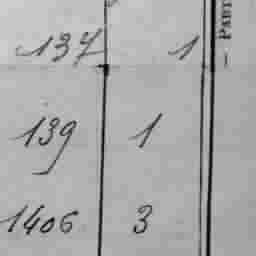 137 1
139 1
1406 3
— PART